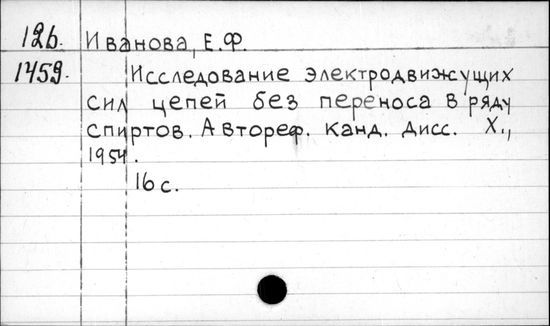 126. Иванова, Е.Ф.
1459. Исследование электродвижущих
сил цепей без переноса в ряду
спиртов. Автореф. канд. дисс. Х.,
1954.
16 с.